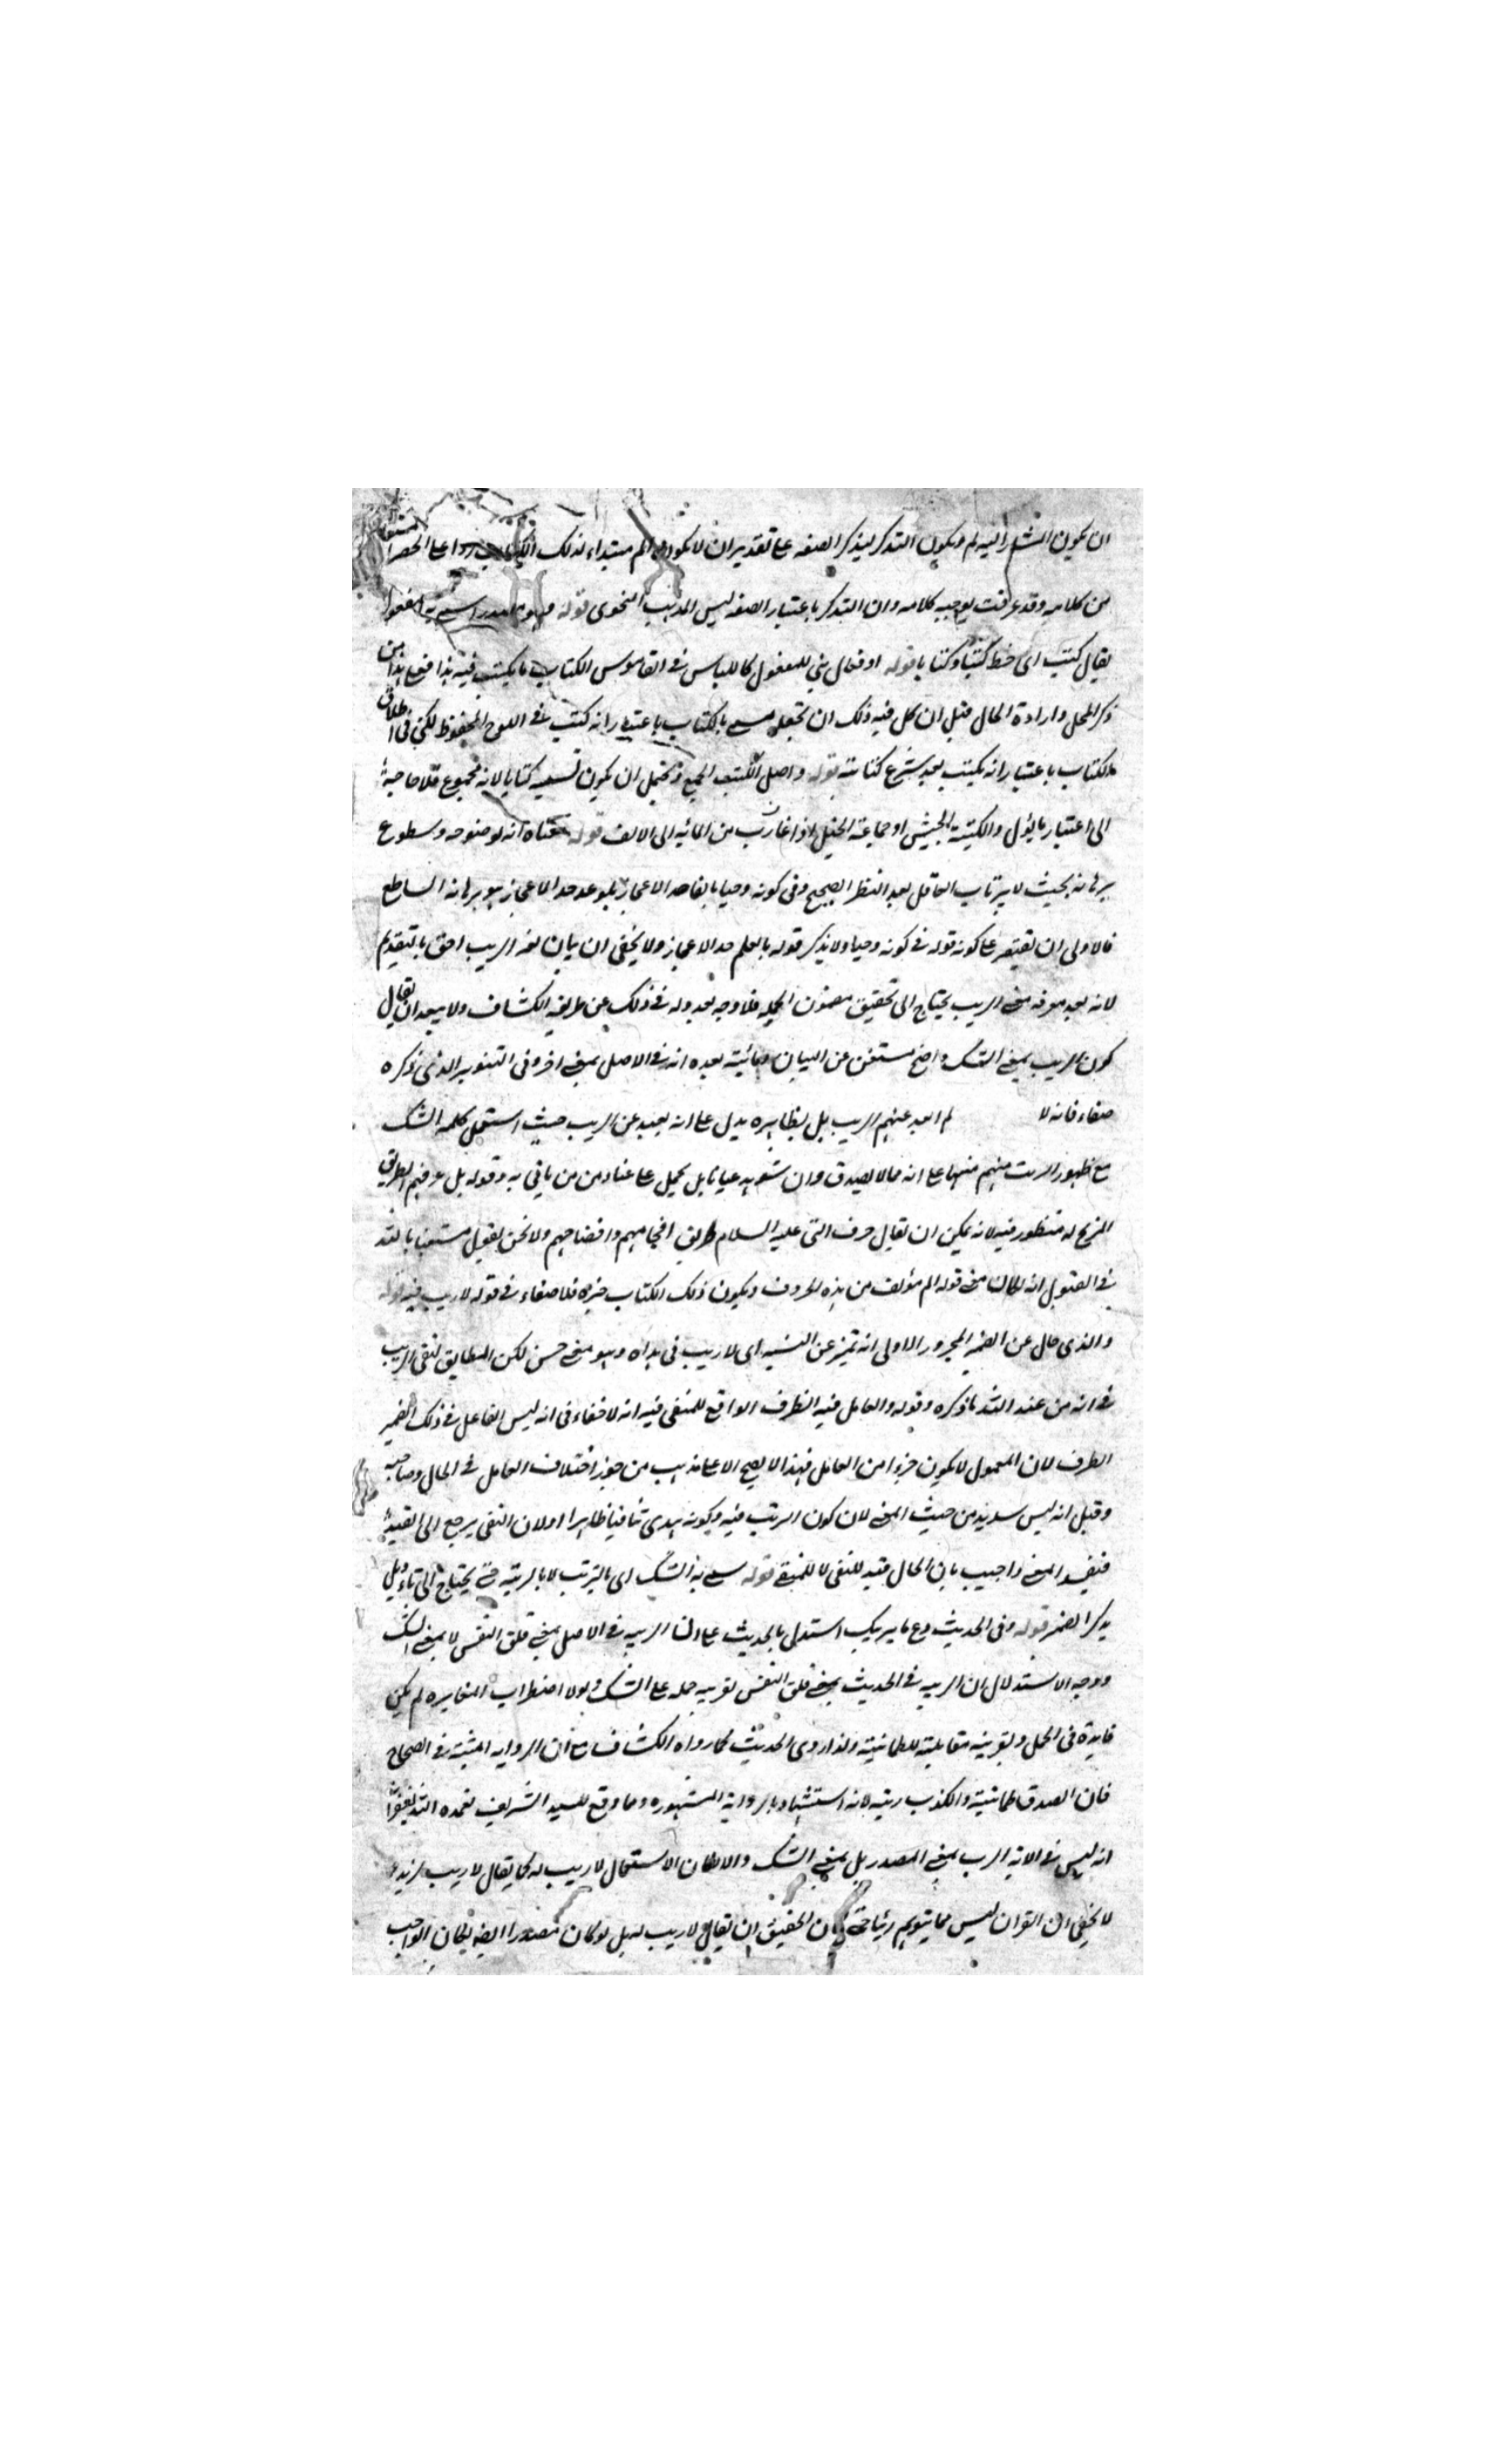 ان يكون المشار اليه الم ويكون التذكير لتذكير الصفة على تقدير ان لا يكون الم مبتداء لذلك الكتاب ردا على الحصر المستفاد
من كلامه وقد عرفت توجيه كلامه وان التذكير باعتبار الصفة ليس المذهب النحوي قوله وهو مصدر سمى به المفعول
يقال كتب اى خط كتبا وكتابا قوله او فعال بني للمفعول كاللباس في القاموس الكتاب ما يكتب فيه هذا فعلى هذا من
ذكر المحل وارادة الحال قيل ان كل فيه ذلك ان تجعله مسمى بالكتاب باعتبار انه كتب في اللوح المحفوظ لكن في اطلاق
الكتاب باعتبار انه يكتب بعد شرع كتابته قوله واصل الكتب الجمع ويحتمل ان يكون تسميته كتابا لانه مجموع فلا حاجة
الى اعتبار ما يؤل والكتيبة الجيش او جماعة الخيل اذا اغارت من المائة الى الالف قوله معناه انه لوضوحه وسطوع
برهانه بحيث لا يرتاب العاقل بعد النظر الصحيح وفى كونه وحيا بالغا حد الاعجاز بلوغه حد الاعجاز هو برهانه الساطع
فالاولى ان يقتصر على كونه قوله في كونه وحيا ولا يذكر قوله بالغا حد الاعجاز ولا يخفى ان بيان معنى الريب احق بالتقديم
لانه بعد معرفة معنى الريب يحتاج الى تحقيق مضمون الجملة فلا وجه لعدوله في ذلك عن طريقة الكشاف ولا يبعد ان يقال
كون الريب بمعنى الشك واضح مستغن عن البيان وما بينه بعده انه في الاصل بمعنى اخر وفى التنوير الذى ذكره
خفاء فانه لا لم ابعد عنهم الريب بل بظاهره يدل على انه بعيد عن الريب حيث استعمل كلمة الشك
مع ظهور الريب منهم منبها على انه مما لا يصدق وان شوهد عيانا بل يحمل على عناد من من ياتي به وقوله بل عرفهم الطريق
المزيح له منظور فيه لانه يمكن ان يقال عرف النبى عليه السلام طريق افحامهم وافضاحهم ونحن نقول مستعينا بالله
في القبول انه لما كان معنى قوله الم مؤلف من هذه الحروف ويكون ذلك الكتاب خبره فلا خفاء في قوله لا ريب فيه قوله
والذى حال عن الضمير المجرور الاولى انه تميز عن النسبة اى لا ريب فى هداه وهو معنى حسن لكن المطابق لنفى الريب
في انه من عند الله ما ذكره وقوله والعامل فيه الظرف الواقع للمنفى فيه انه لا خفاء فى انه ليس العامل في ذلك الضمير
الظرف لان المعمول لا يكون جزءا من العامل فهذا لا يصح الا على مذهب من جوز اختلاف العامل في الحال وصاحبه
وقيل انه ليس سديد من حيث المعنى لان كون الريب فيه وكونه هدى تنافيا ظاهرا ولان النفى يرجع الى القيد
فيفسد المعنى واجيب بان الحال قيد للنفى لا للمنفى قوله سمى به الشك اى بالريب لا بالريبة حتى يحتاج الى تاويل
تذكير الضمير قوله وفى الحديث دع ما يريبك استدل بالحديث على ان الريبة في الاصل بمعنى قلق النفس لا بمعنى الشك
ووجه الاستدلال ان الريبة في الحديث بمعنى قلق النفس بقرينة حمله على الشك ولولا اضطراب المغايرة لم يكن
فايدة فى الحمل وبقرينة مقابلته للطمانينة ولذا روى الحديث كما رواه الكشاف مع ان الرواية المثبتة في الصحاح
فان الصدق طمانينة والكذب ريبة لانه استشهاد بالرواية المشهورة وما وقع للسيد الشريف تغمده الله بغفرانه
انه ليس في الاية الريب بمعنى المصدر بل بمعنى الشك والا لكان الاستعمال لا ريب له كما يقال لا ريب لزيد
لا يخفى ان القران ليس مما يتوهم ان يقال لا ريب له بل لو كان مصدرا ايضا لكان الواجب